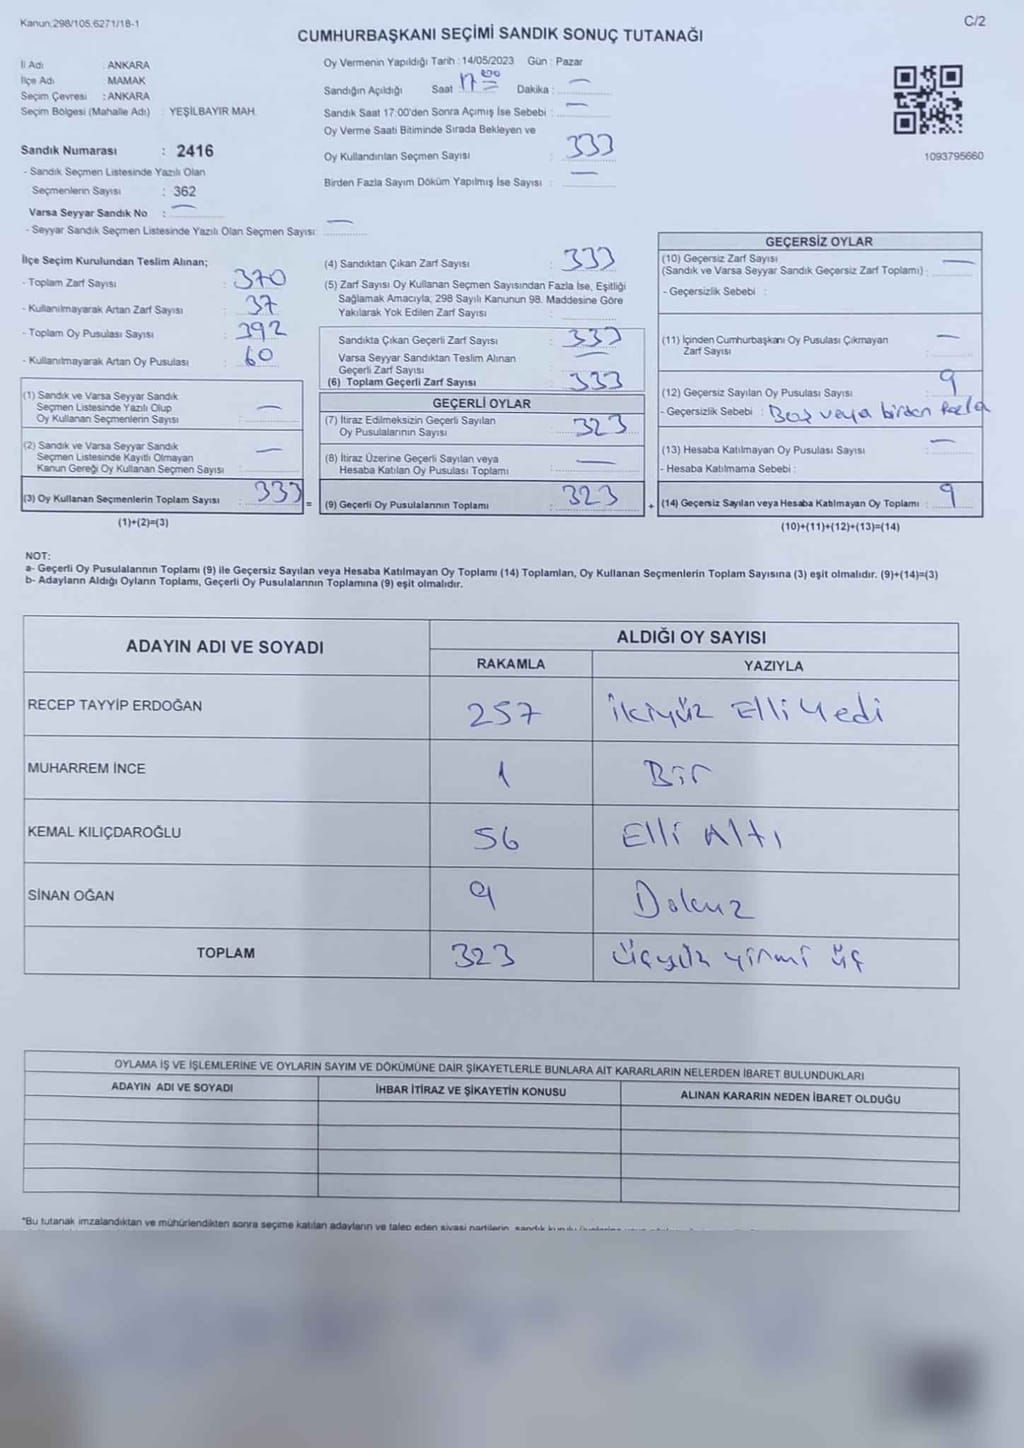 Kanun.298/105,6271/18-1
C/2
CUMHURBAŞKANI SEÇİMİ SANDIK SONUÇ TUTANAĞI
İl Adı : ANKARA
İlçe Adı : MAMAK
Seçim Çevresi : ANKARA
Seçim Bölgesi (Mahalle Adı) : YEŞİLBAYIR MAH.
Sandık Numarası : 2416
- Sandık Seçmen Listesinde Yazılı Olan
Seçmenlerin Sayısı : 362
Varsa Seyyar Sandık No : —
- Seyyar Sandık Seçmen Listesinde Yazılı Olan Seçmen Sayısı: —
Oy Vermenin Yapıldığı Tarih : 14/05/2023 Gün : Pazar
Sandığın Açıldığı Saat : 17.00 Dakika : —
Sandık Saat 17:00'den Sonra Açımış İse Sebebi : —
Oy Verme Saati Bitiminde Sırada Bekleyen ve
Oy Kullandırılan Seçmen Sayısı : 333
Birden Fazla Sayım Döküm Yapılmış İse Sayısı : —
1093795660
İlçe Seçim Kurulundan Teslim Alınan;
- Toplam Zarf Sayısı : 370
- Kullanılmayarak Artan Zarf Sayısı : 37
- Toplam Oy Pusulası Sayısı : 392
- Kullanılmayarak Artan Oy Pusulası : 60
(1) Sandık ve Varsa Seyyar Sandık
Seçmen Listesinde Yazılı Olup
Oy Kullanan Seçmenlerin Sayısı : —
(2) Sandık ve Varsa Seyyar Sandık
Seçmen Listesinde Kayıtlı Olmayan
Kanun Gereği Oy Kullanan Seçmen Sayısı : —
(3) Oy Kullanan Seçmenlerin Toplam Sayısı : 333 =
(1)+(2)=(3)
(4) Sandıktan Çıkan Zarf Sayısı : 333
(5) Zarf Sayısı Oy Kullanan Seçmen Sayısından Fazla İse, Eşitliği
Sağlamak Amacıyla, 298 Sayılı Kanunun 98. Maddesine Göre
Yakılarak Yok Edilen Zarf Sayısı :
Sandıkta Çıkan Geçerli Zarf Sayısı : 333
Varsa Seyyar Sandıktan Teslim Alınan
Geçerli Zarf Sayısı : —
(6) Toplam Geçerli Zarf Sayısı : 333
GEÇERLİ OYLAR
(7) İtiraz Edilmeksizin Geçerli Sayılan
Oy Pusulalarının Sayısı : 323
(8) İtiraz Üzerine Geçerli Sayılan veya
Hesaba Katılan Oy Pusulası Toplamı : —
(9) Geçerli Oy Pusulalarının Toplamı : 323 +
GEÇERSİZ OYLAR
(10) Geçersiz Zarf Sayısı
(Sandık ve Varsa Seyyar Sandık Geçersiz Zarf Toplamı) : —
- Geçersizlik Sebebi :
(11) İçinden Cumhurbaşkanı Oy Pusulası Çıkmayan
Zarf Sayısı : —
(12) Geçersiz Sayılan Oy Pusulası Sayısı : 9
- Geçersizlik Sebebi : Boş veya birden fazla
(13) Hesaba Katılmayan Oy Pusulası Sayısı : —
- Hesaba Katılmama Sebebi :
(14) Geçersiz Sayılan veya Hesaba Katılmayan Oy Toplamı : 9
(10)+(11)+(12)+(13)=(14)
NOT:
a- Geçerli Oy Pusulalarının Toplamı (9) ile Geçersiz Sayılan veya Hesaba Katılmayan Oy Toplamı (14) Toplamları, Oy Kullanan Seçmenlerin Toplam Sayısına (3) eşit olmalıdır. (9)+(14)=(3)
b- Adayların Aldığı Oyların Toplamı, Geçerli Oy Pusulalarının Toplamına (9) eşit olmalıdır.
ADAYIN ADI VE SOYADI
ALDIĞI OY SAYISI
RAKAMLA YAZIYLA
RECEP TAYYİP ERDOĞAN 257 İkiyüz Elli Yedi
MUHARREM İNCE 1 Bir
KEMAL KILIÇDAROĞLU 56 Elli Altı
SİNAN OĞAN 9 Dokuz
TOPLAM 323 üçyüz yirmi üç
OYLAMA İŞ VE İŞLEMLERİNE VE OYLARIN SAYIM VE DÖKÜMÜNE DAİR ŞİKAYETLERLE BUNLARA AİT KARARLARIN NELERDEN İBARET BULUNDUKLARI
ADAYIN ADI VE SOYADI İHBAR İTİRAZ VE ŞİKAYETİN KONUSU ALINAN KARARIN NEDEN İBARET OLDUĞU
"Bu tutanak imzalandıktan ve mühürlendikten sonra seçime katılan adayların ve talep eden siyasi partilerin, sandık kurulu